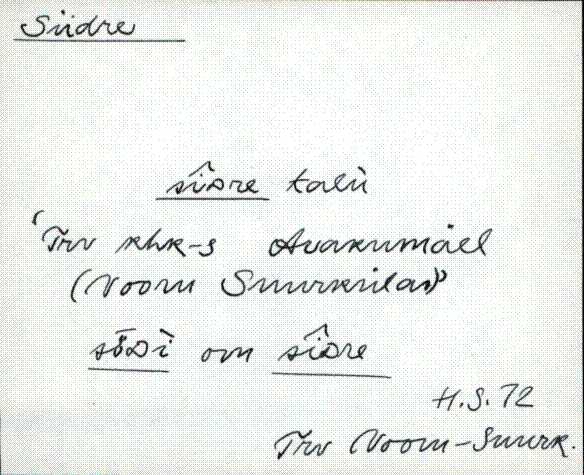 Siidre
sîᴅre talù
'Trv khk-s Avakumäel
(Vooru Suurkülas)'
om sîᴅre
H.S. 72
Trv Vooru-Suurk.